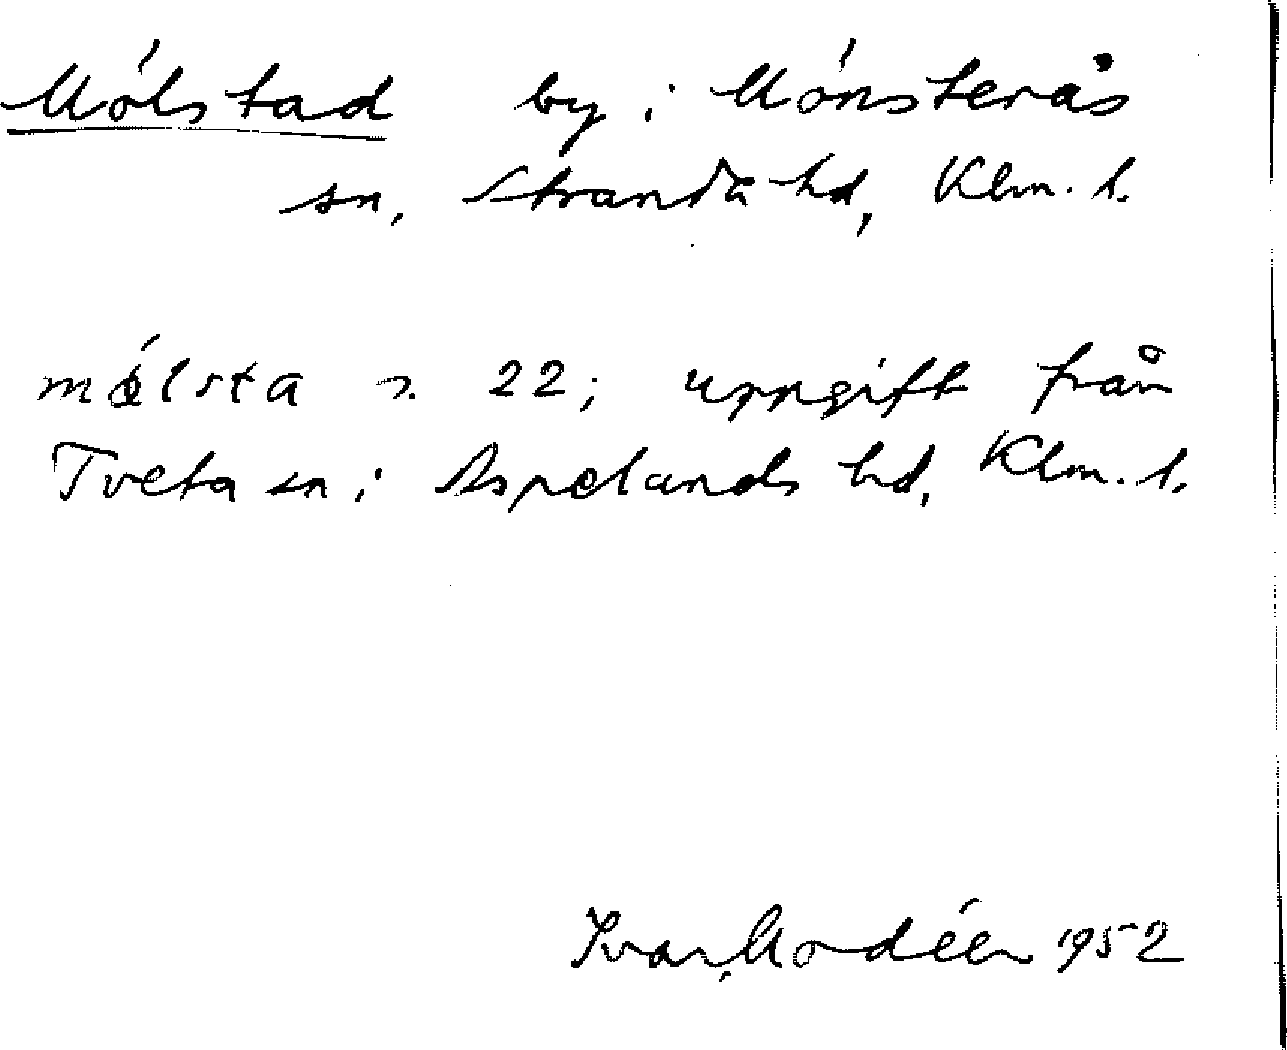 Mólstad by i Mónsterås
sn, Stranda hd, Klm. l.
mólsta s. 22; uppgift från
Tveta sn i Aspelands hd, Klm. l.
Ivar Modéer 1952